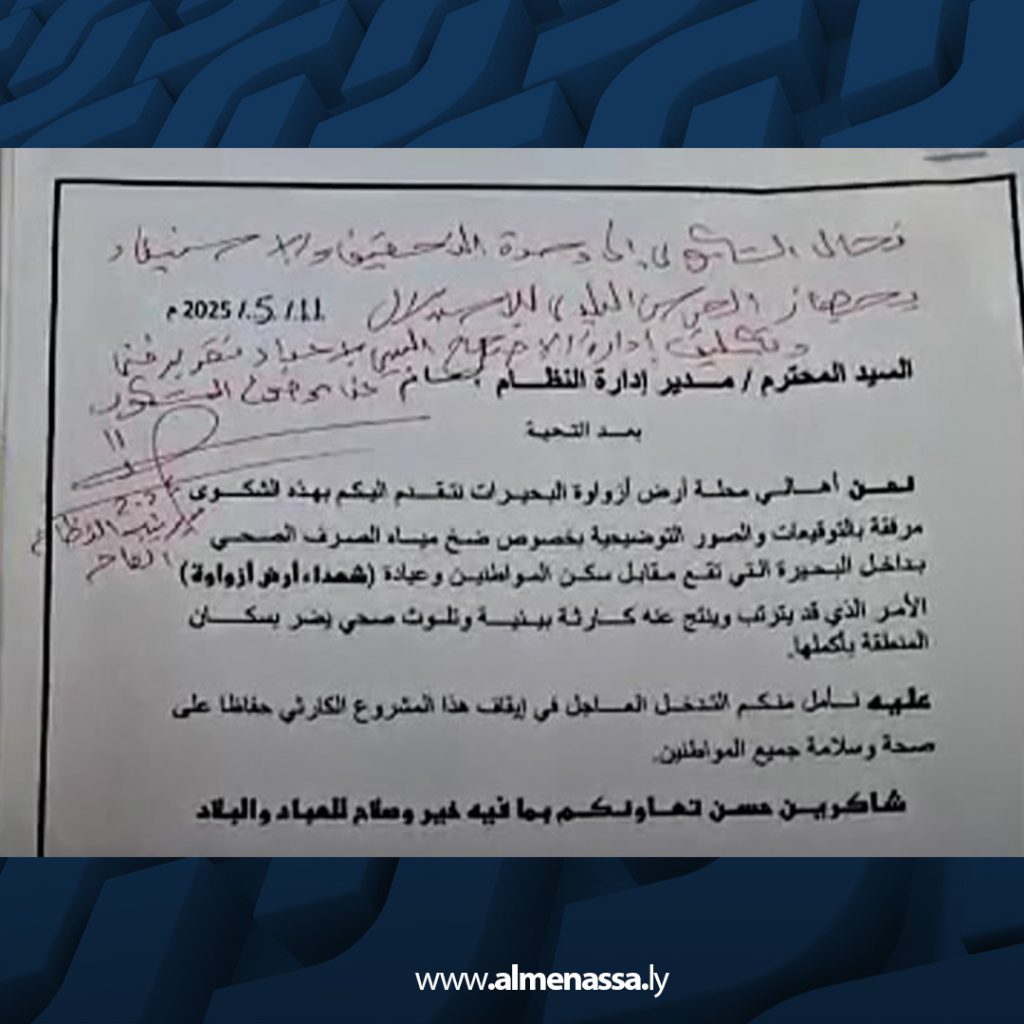 تحال الشكوى إلى وحدة التحقيق والاستيفاء
بجهاز الحرس البلدي للاستدلال
2025/5/11 م
وتكليف إدارة الإصحاح البيئي بإعداد تقرير فني
السيد المحترم / مدير إدارة النظام
عن موضوع الشكوى
11
بعد التحية
نحن أهالي محلة أرض أزواوة البحيرات نتقدم اليكم بهذه الشكوى
مرفقة بالتوقيعات والصور التوضيحية بخصوص ضخ مياه الصرف الصحي
بداخل البحيرة التي تقع مقابل سكن المواطنين وعيادة (شهداء أرض أزواوة)
الأمر الذي قد يترتب وينتج عنه كارثة بيئية وتلوث صحي يضر بسكان
المنطقة بأكملها.
عليه نأمل منكم التدخل العاجل في إيقاف هذا المشروع الكارثي حفاظا على
صحة وسلامة جميع المواطنين.
شاكرين حسن تعاونكم بما فيه خير وصلاح للعباد والبلاد
www.almenassa.ly